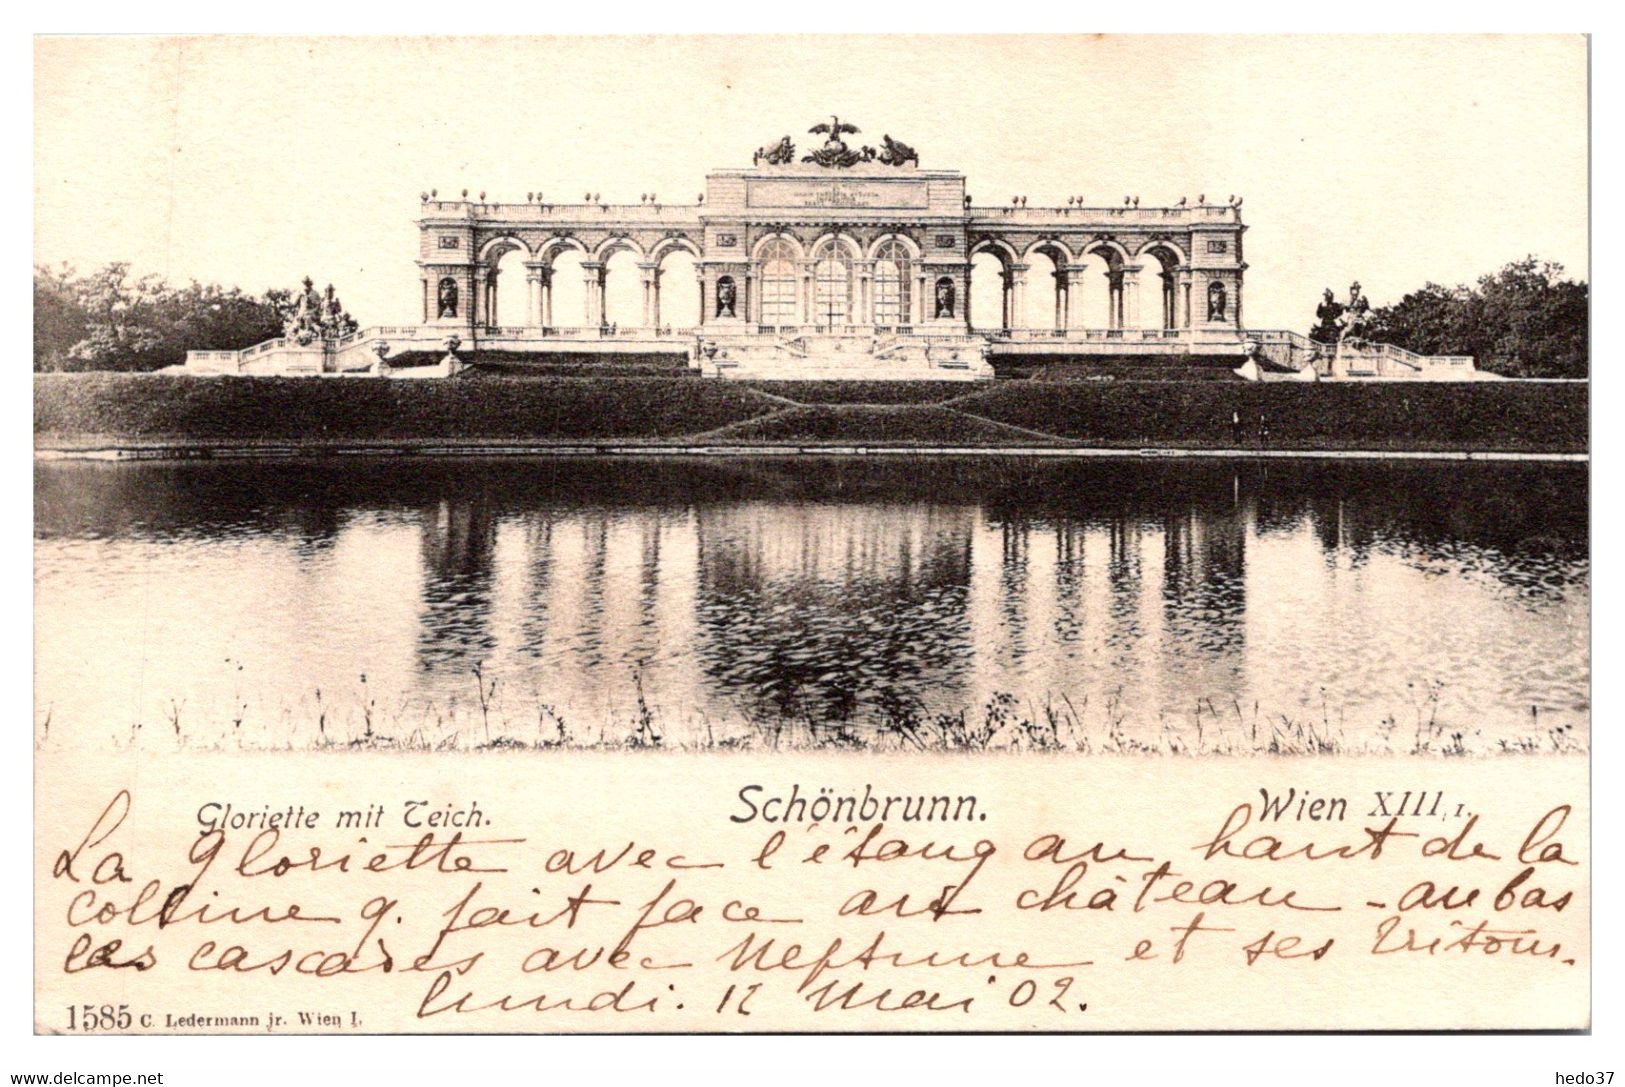 Gloriette mit Teich.
Schönbrunn.
Wien XIII, 1.
La Gloriette avec l'étang au haut de la
colline q. fait face au château - au bas
les cascades avec Neptune et ses Tritons.
lundi. 12 Mai 02.
1585 C. Ledermann jr. Wien I.
www.delcampe.net
hedo37